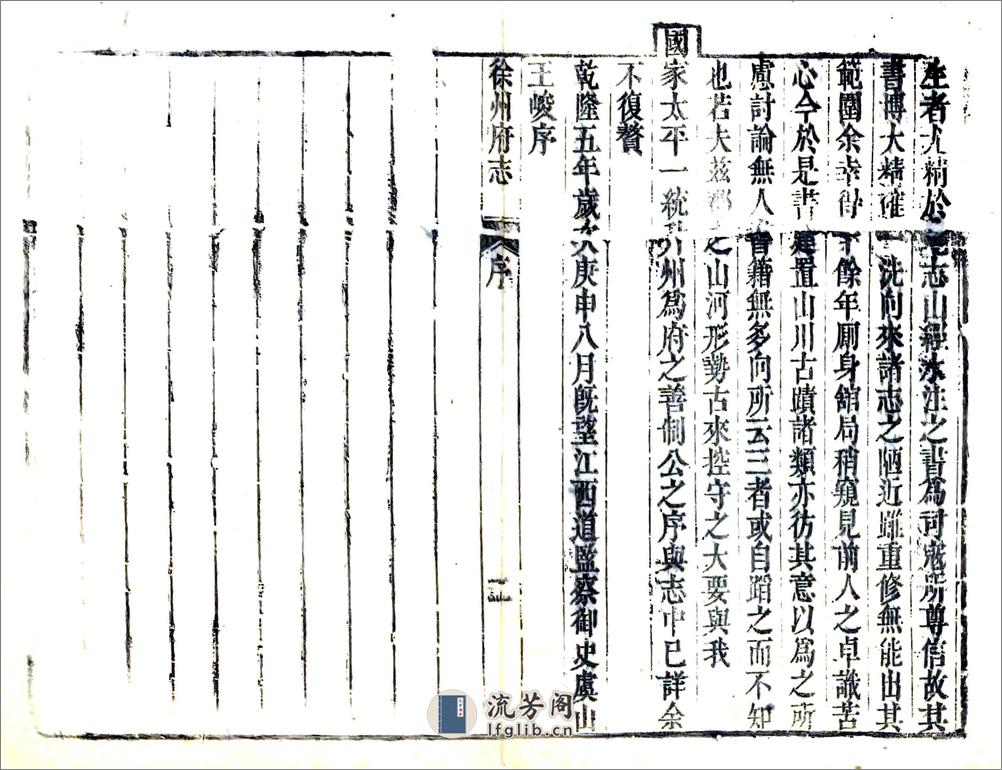 生者尤精於志山經水注之書爲司寇所尊信故其
書博大精確洗向來諸志之陋近雖重修無能出其
範圍余幸得十餘年厠身館局稍窺見前人之卓識苦
心今於是書建置山川古蹟諸類亦彷其意以爲之所
慮討論無人書籍無多向所云三者或自蹈之而不知
也若夫茲郡之山河形勢古來控守之大要與我
國家太平一統升州爲府之善制公之序與志中已詳余
不復贅
乾隆五年歲次庚申八月旣望江西道監察御史虞山
王峻序
徐州府志 序 三
流芳阁
lfglib.cn